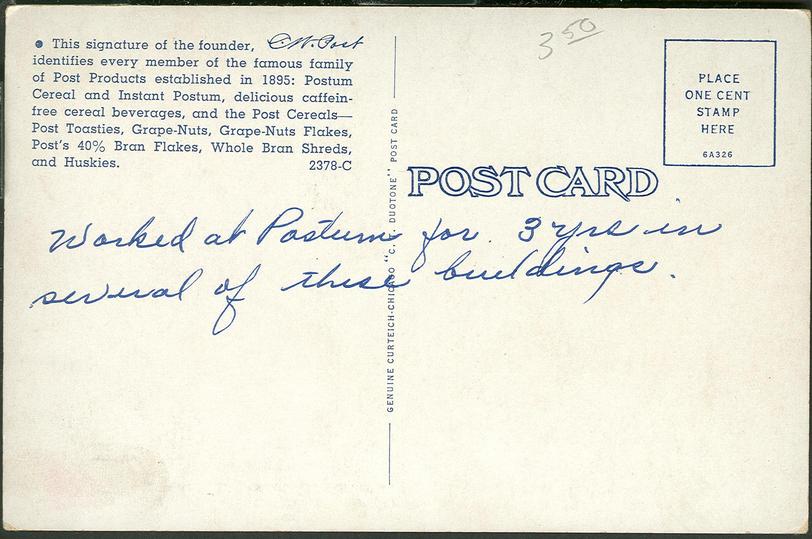 • This signature of the founder, C.W. Post
identifies every member of the famous family
of Post Products established in 1895: Postum
Cereal and Instant Postum, delicious caffein-
free cereal beverages, and the Post Cereals—
Post Toasties, Grape-Nuts, Grape-Nuts Flakes,
Post's 40% Bran Flakes, Whole Bran Shreds,
and Huskies. 2378-C
350
PLACE
ONE CENT
STAMP
HERE
6A326
POST CARD
GENUINE CURTEICH-CHICAGO "C. T. DUOTONE" POST CARD
Worked at Postum for 3 yrs in
several of these buildings.